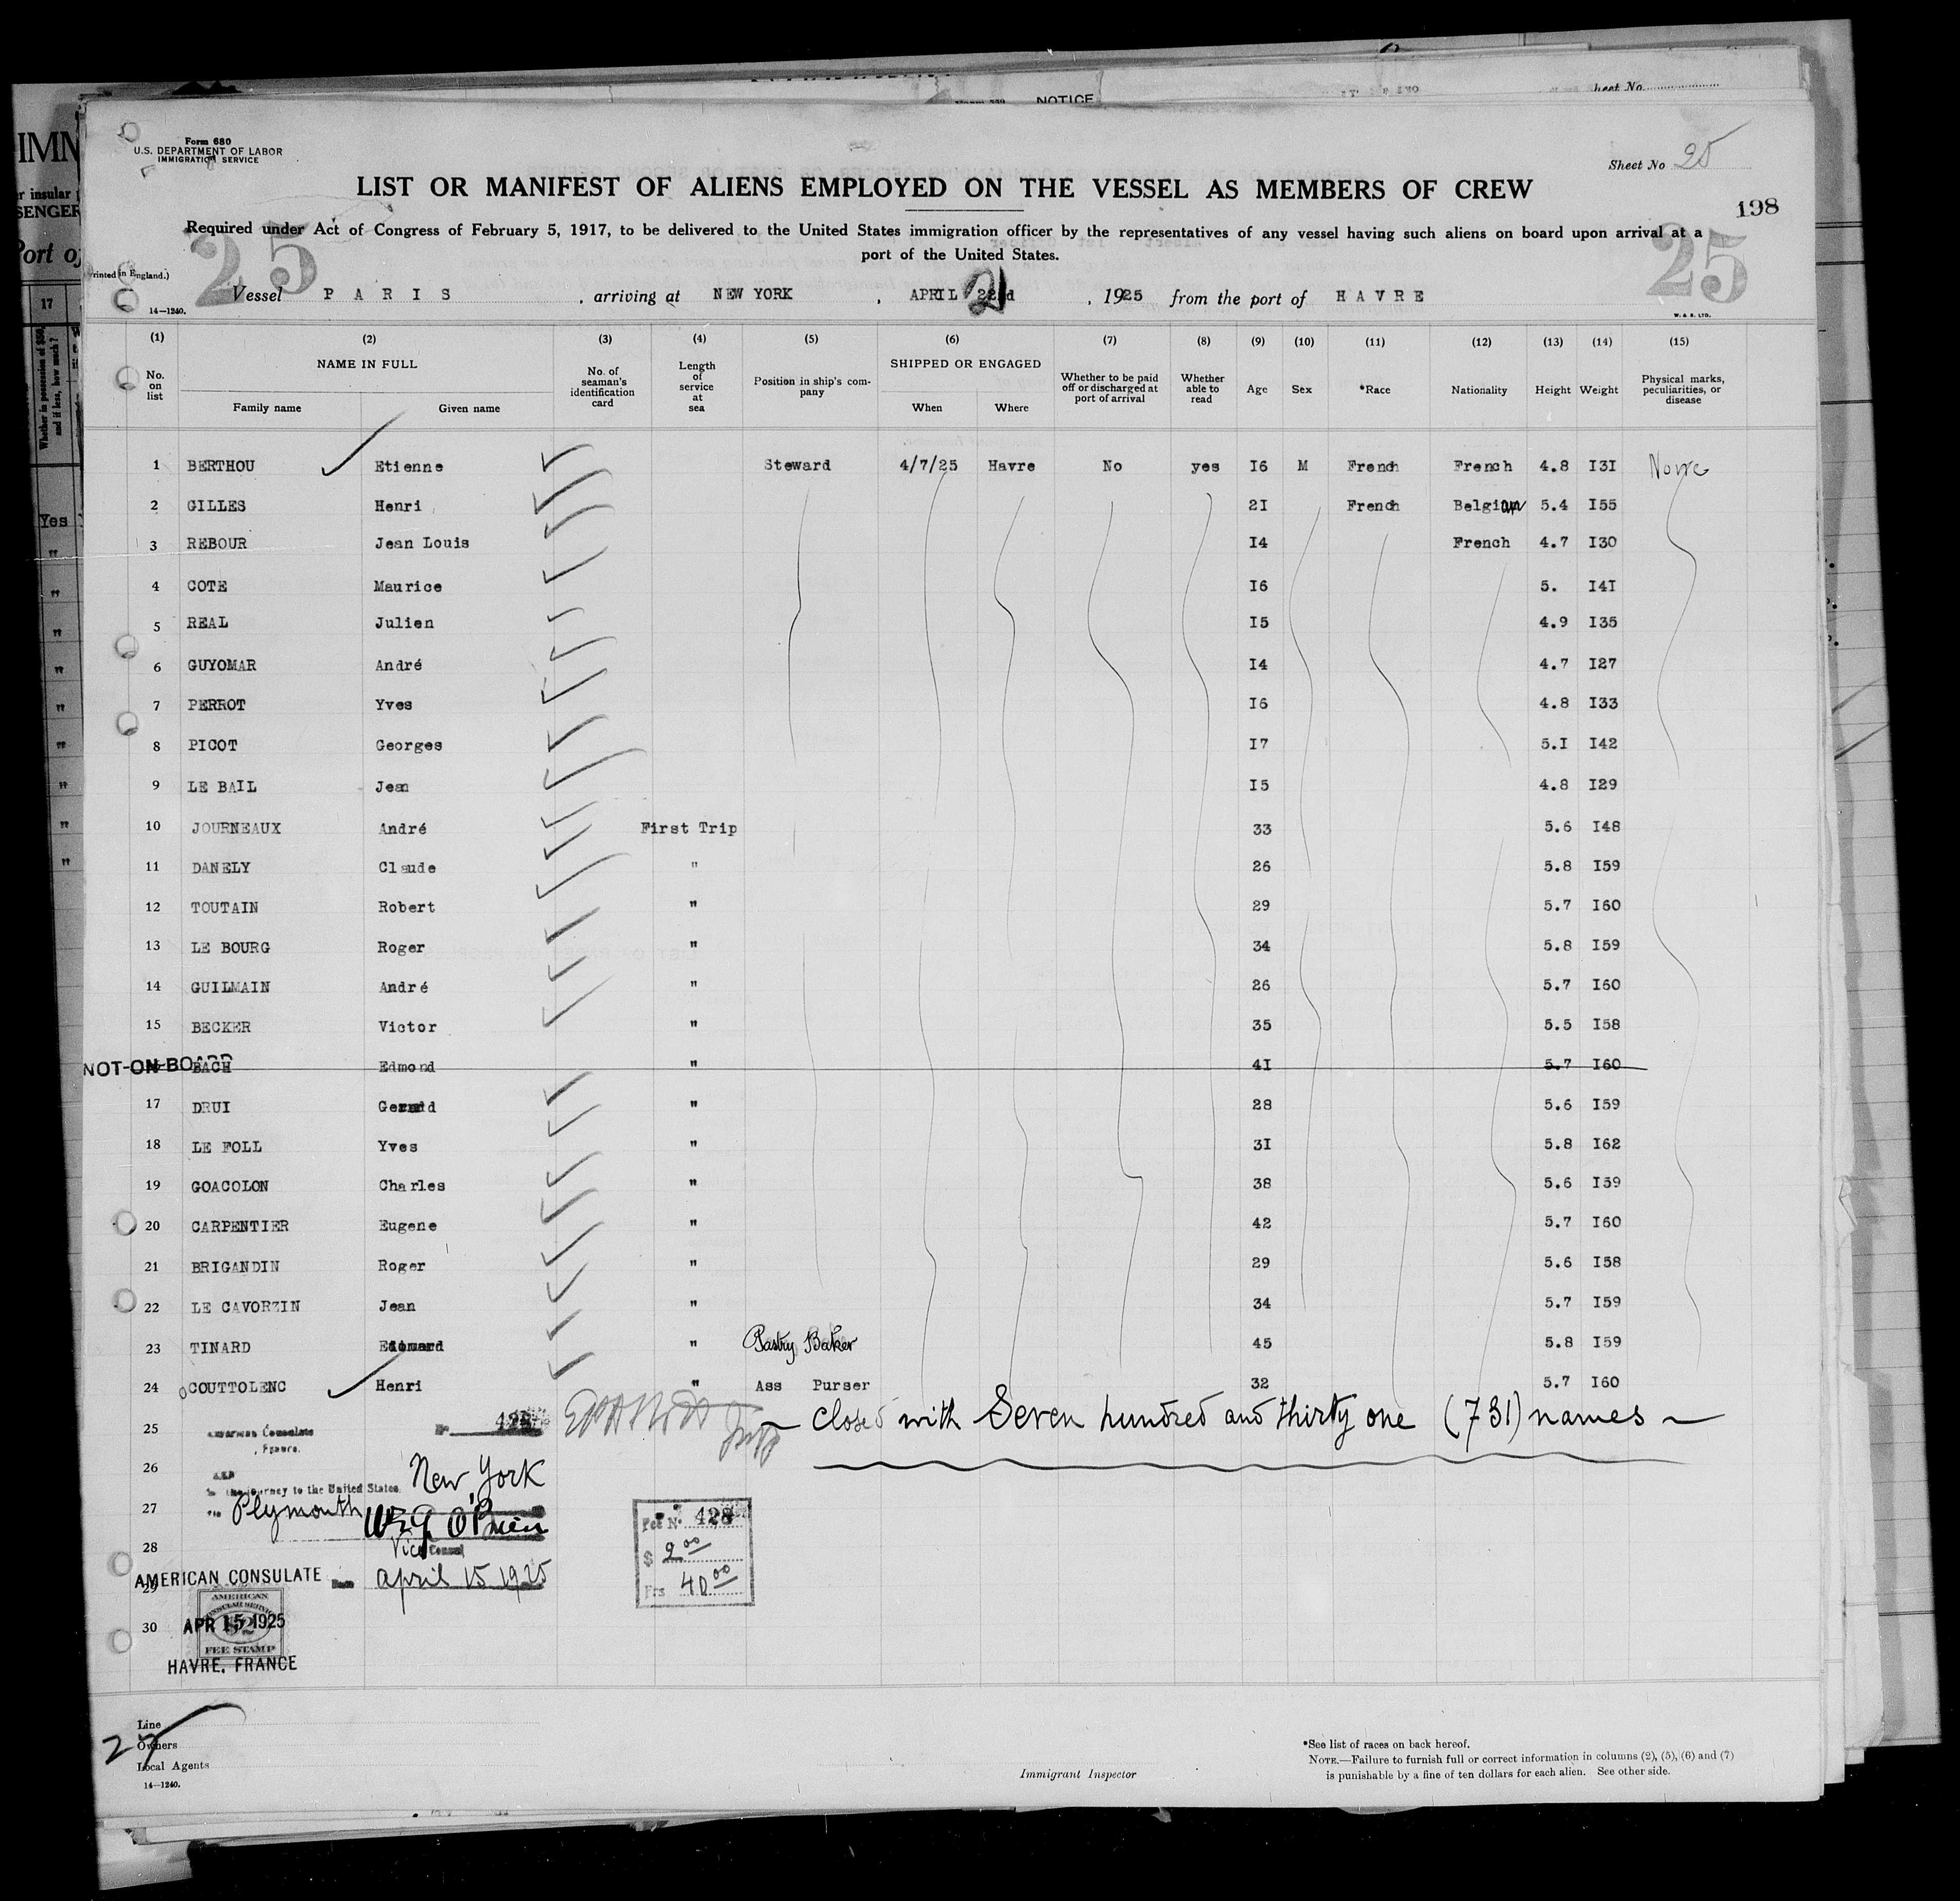 NOTICE
heet No.
Form 680
U.S. DEPARTMENT OF LABOR
IMMIGRATION SERVICE
Sheet No 25
LIST OR MANIFEST OF ALIENS EMPLOYED ON THE VESSEL AS MEMBERS OF CREW
198
Required under Act of Congress of February 5, 1917, to be delivered to the United States immigration officer by the representatives of any vessel having such aliens on board upon arrival at a
port of the United States.
25 25
rinted in England.)
Vessel PARIS, arriving at NEW YORK, APRIL 21, 1925 from the port of HAVRE
14—1240. W. & S. LTD.
(1) (2) (3) (4) (5) (6) (7) (8) (9) (10) (11) (12) (13) (14) (15)
No. on list NAME IN FULL Family name Given name No. of seaman's identification card Length of service at sea Position in ship's company SHIPPED OR ENGAGED When Where Whether to be paid off or discharged at port of arrival Whether able to read Age Sex *Race Nationality Height Weight Physical marks, peculiarities, or disease
1 BERTHOU Etienne Steward 4/7/25 Havre No yes I6 M French French 4.8 I3I None
2 GILLES Henri 2I French Belgian 5.4 I55
3 REBOUR Jean Louis I4 French 4.7 I30
4 COTE Maurice I6 5. I4I
5 REAL Julien I5 4.9 I35
6 GUYOMAR André I4 4.7 I27
7 PERROT Yves I6 4.8 I33
8 PICOT Georges I7 5.I I42
9 LE BAIL Jean I5 4.8 I29
10 JOURNEAUX André First Trip 33 5.6 I48
11 DANELY Claude " 26 5.8 I59
12 TOUTAIN Robert " 29 5.7 I60
13 LE BOURG Roger " 34 5.8 I59
14 GUILMAIN André " 26 5.7 I60
15 BECKER Victor " 35 5.5 I58
NOT-ON-BOARD BACH Edmond " 4I 5.7 I60
17 DRUI " 28 5.6 I59
18 LE FOLL Yves " 3I 5.8 I62
19 GOACOLON Charles " 38 5.6 I59
20 CARPENTIER Eugene " 42 5.7 I60
21 BRIGANDIN Roger " 29 5.6 I58
22 LE CAVORZIN Jean " 34 5.7 I59
23 TINARD Edouard " Pastry Baker 45 5.8 I59
24 COUTTOLENC Henri " Ass Purser 32 5.7 I60
25 American Consulate 428 closed with Seven hundred and thirty one (731) names
France.
26 New York
the journey to the United States
27 Plymouth O'Brien
28 Vice Consul
Fee No. 428
$ 2.00
Frs 40.00
29 AMERICAN CONSULATE Date april 15 1925
AMERICAN CONSULAR SERVICE $2 FEE STAMP
30 APR 15 1925
HAVRE, FRANCE
Line
27
Owners
Local Agents
14—1240.
Immigrant Inspector
*See list of races on back hereof.
NOTE.—Failure to furnish full or correct information in columns (2), (5), (6) and (7)
is punishable by a fine of ten dollars for each alien. See other side.